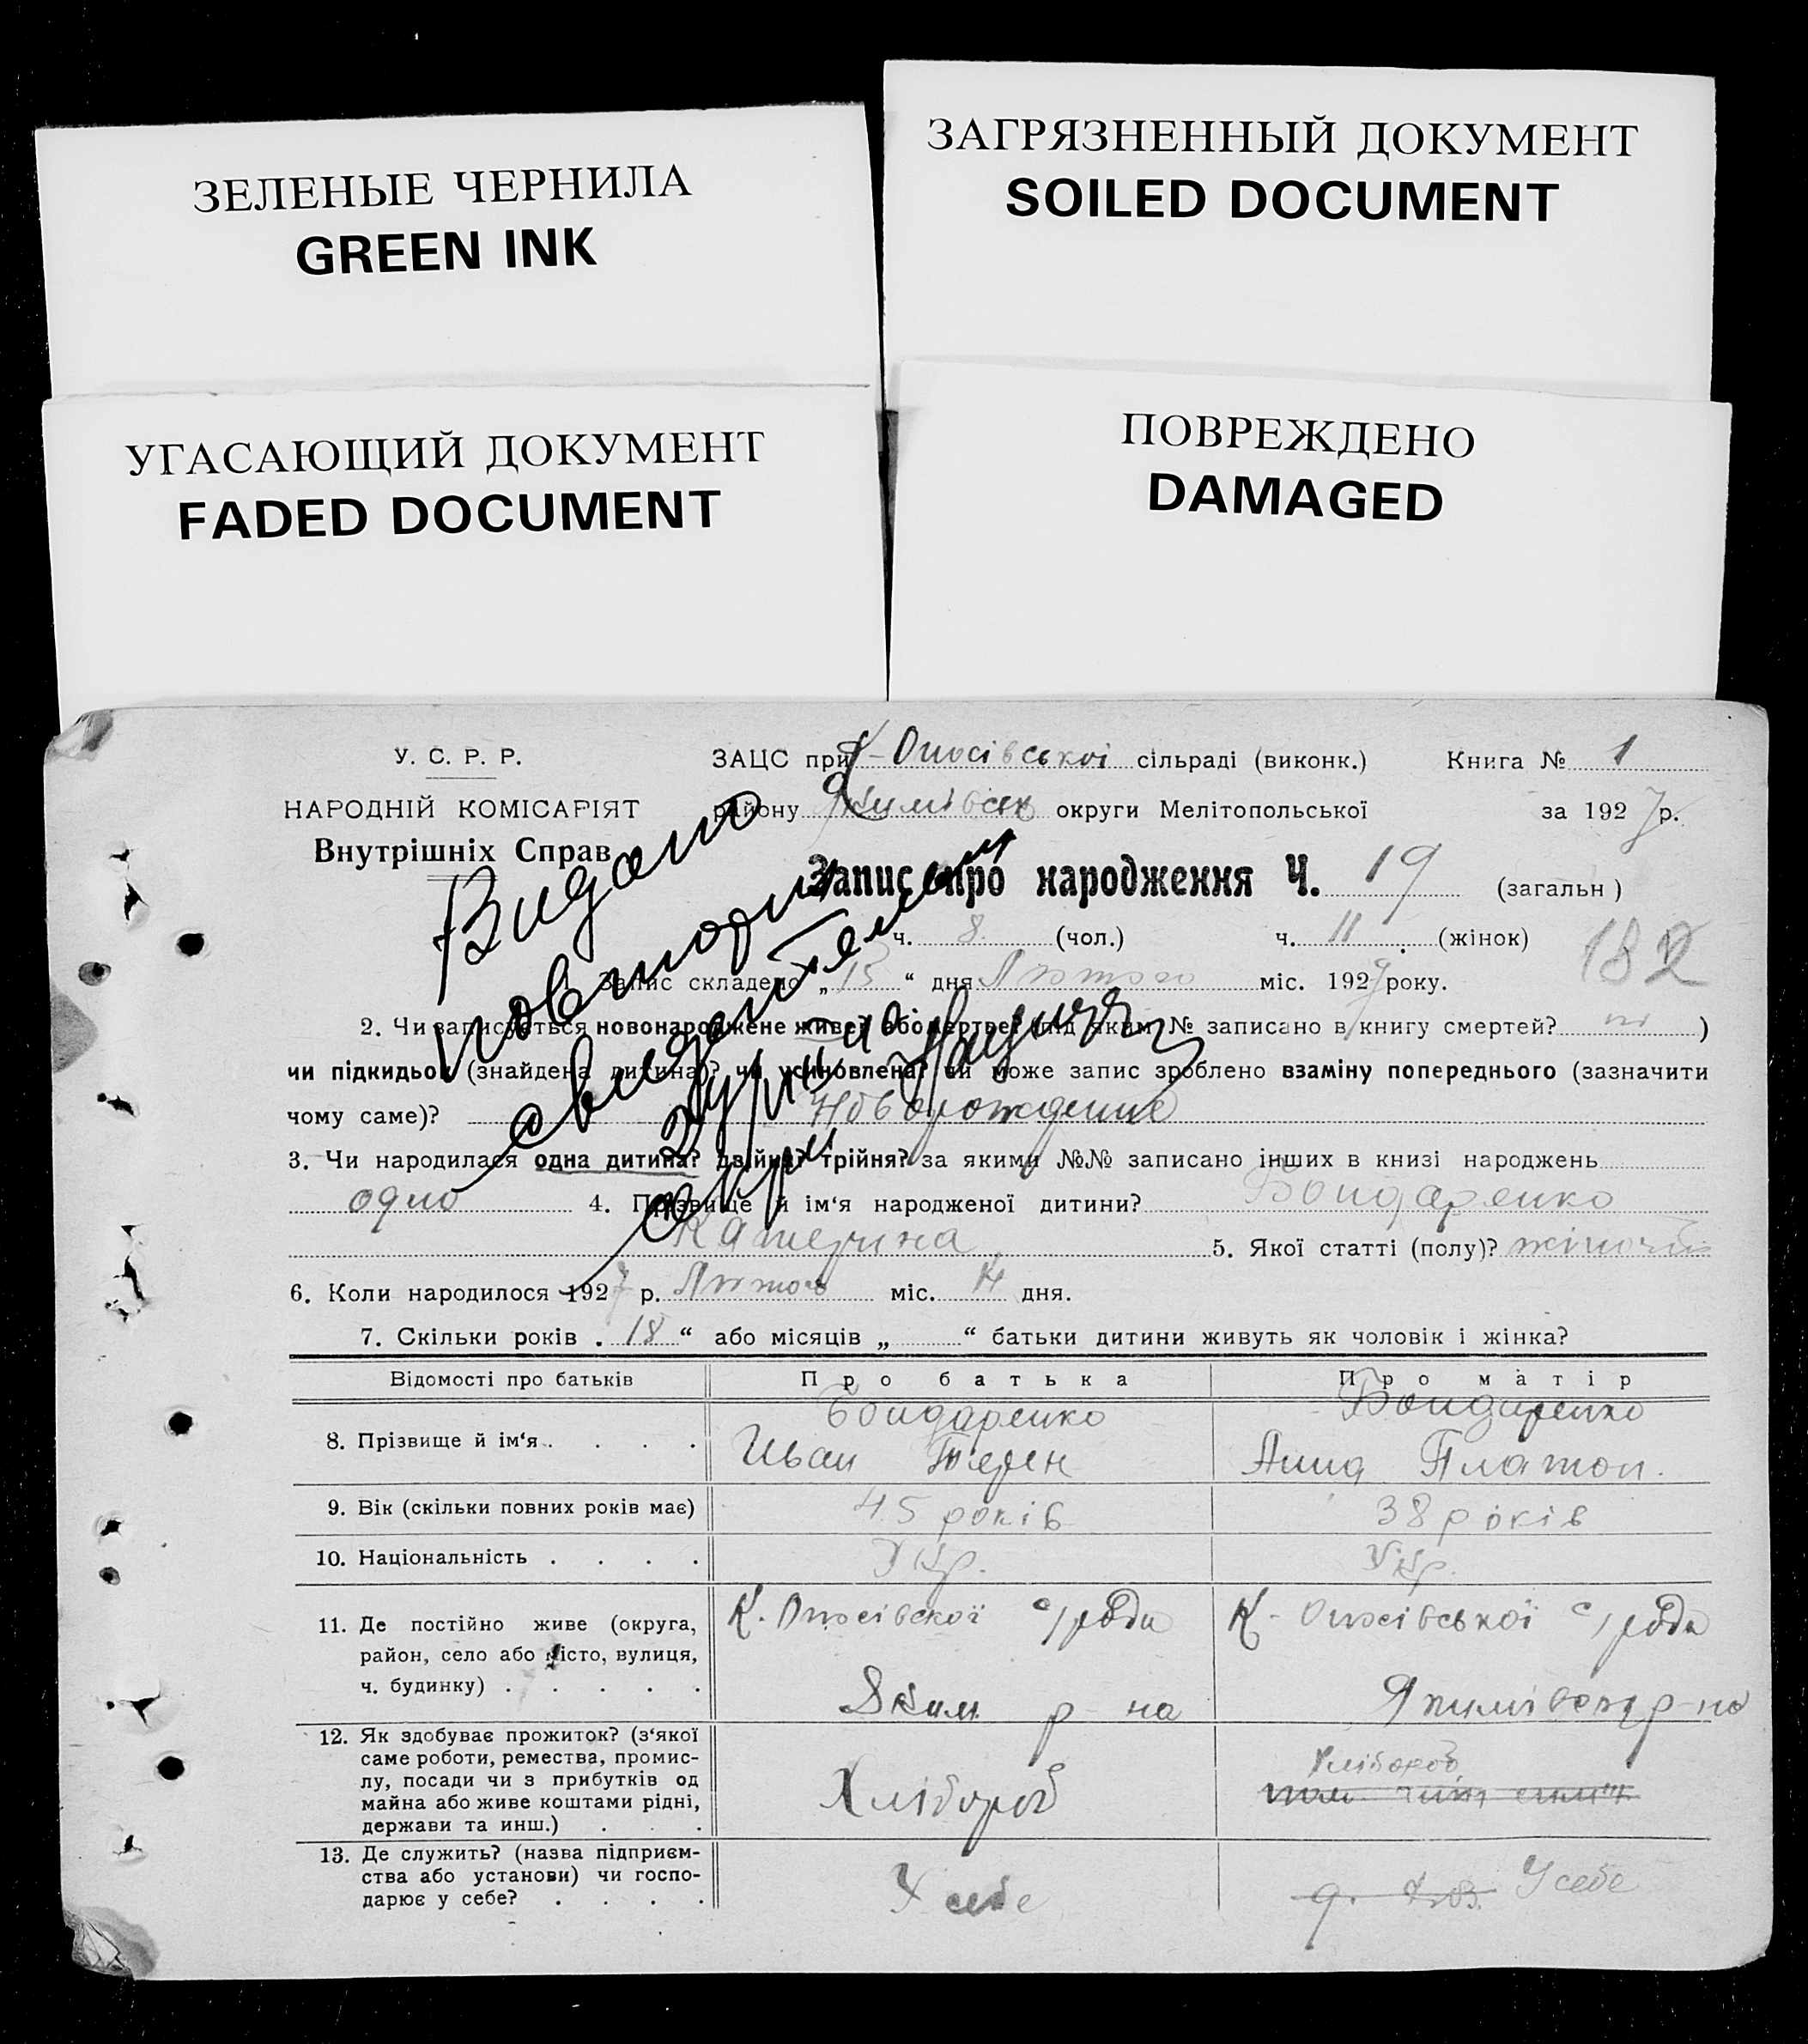 ЗЕЛЕНЫЕ ЧЕРНИЛА
GREEN INK
ЗАГРЯЗНЕННЫЙ ДОКУМЕНТ
SOILED DOCUMENT
УГАСАЮЩИЙ ДОКУМЕНТ
FADED DOCUMENT
ПОВРЕЖДЕНО
DAMAGED
У. С. Р. Р.
НАРОДНІЙ КОМІСАРІЯТ
Внутрішніх Справ
ЗАЦС при сільраді (виконк.) Книга № 1
району округи Мелітопольської за 1927 р.
Запис про народження Ч. 19 (загальн)
ч. 8 (чол.) ч. 11 (жінок) 182
Запис складено „15“ дня Лютого міс. 1927 року.
2. Чи записується новонароджене живе? або мертве? (під яким № записано в книгу смертей? )
чи підкидьок (знайдена дитина)? чи усиновлена? чи може запис зроблено взаміну попереднього (зазначити
чому саме)? Новорождение
3. Чи народилася одна дитина? двійня? трійня? за якими №№ записано інших в книзі народжень
одно 4. Прізвище й ім‘я народженої дитини? Бондаренко
Катерина 5. Якої статті (полу)? жіночої
6. Коли народилося 1927 р. Лютого міс. 14 дня.
7. Скільки років „18“ або місяців „ “ батьки дитини живуть як чоловік і жінка?
Видано
повторно
свидетельст
Відомості про батьків Про батька Про матір
8. Прізвище й ім‘я Бондаренко Бондаренко
Иван Анна Платон.
9. Вік (скільки повних років має) 45 років 38 років
10. Національність Укр. Укр.
11. Де постійно живе (округа,
район, село або місто, вулиця,
ч. будинку)
с/ради с/ради
Яким р-на Якимівськ р-на
12. Як здобуває прожиток? (з‘якої
саме роботи, ремества, промис-
лу, посади чи з прибутків од
майна або живе коштами рідні,
держави та инш.)
Хлібороб Хлібороб
13. Де служить? (назва підприєм-
ства або установи) чи госпо-
дарює у себе?
У себе У себе